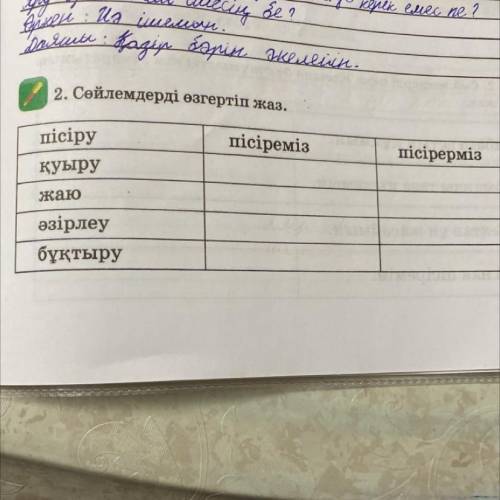 керек емес пе?
Әркен: Иә ішемін.
Даяшы: Қазір бәрін әкелейін.
2. Сөйлемдерді өзгертіп жаз.
пісіру пісіреміз пісірерміз
қуыру
жаю
әзірлеу
бұқтыру